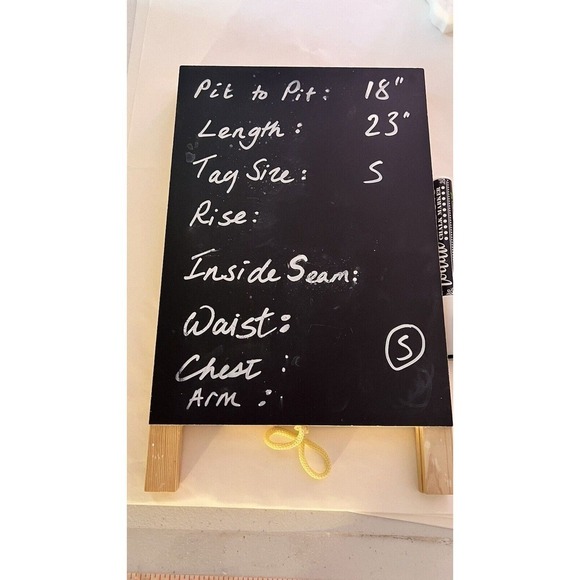 Pit to Pit: 18"
Length: 23"
Tag Size: S
Rise:
Inside Seam:
Waist:
S
Chest:
ARM:
CHALK MARKER